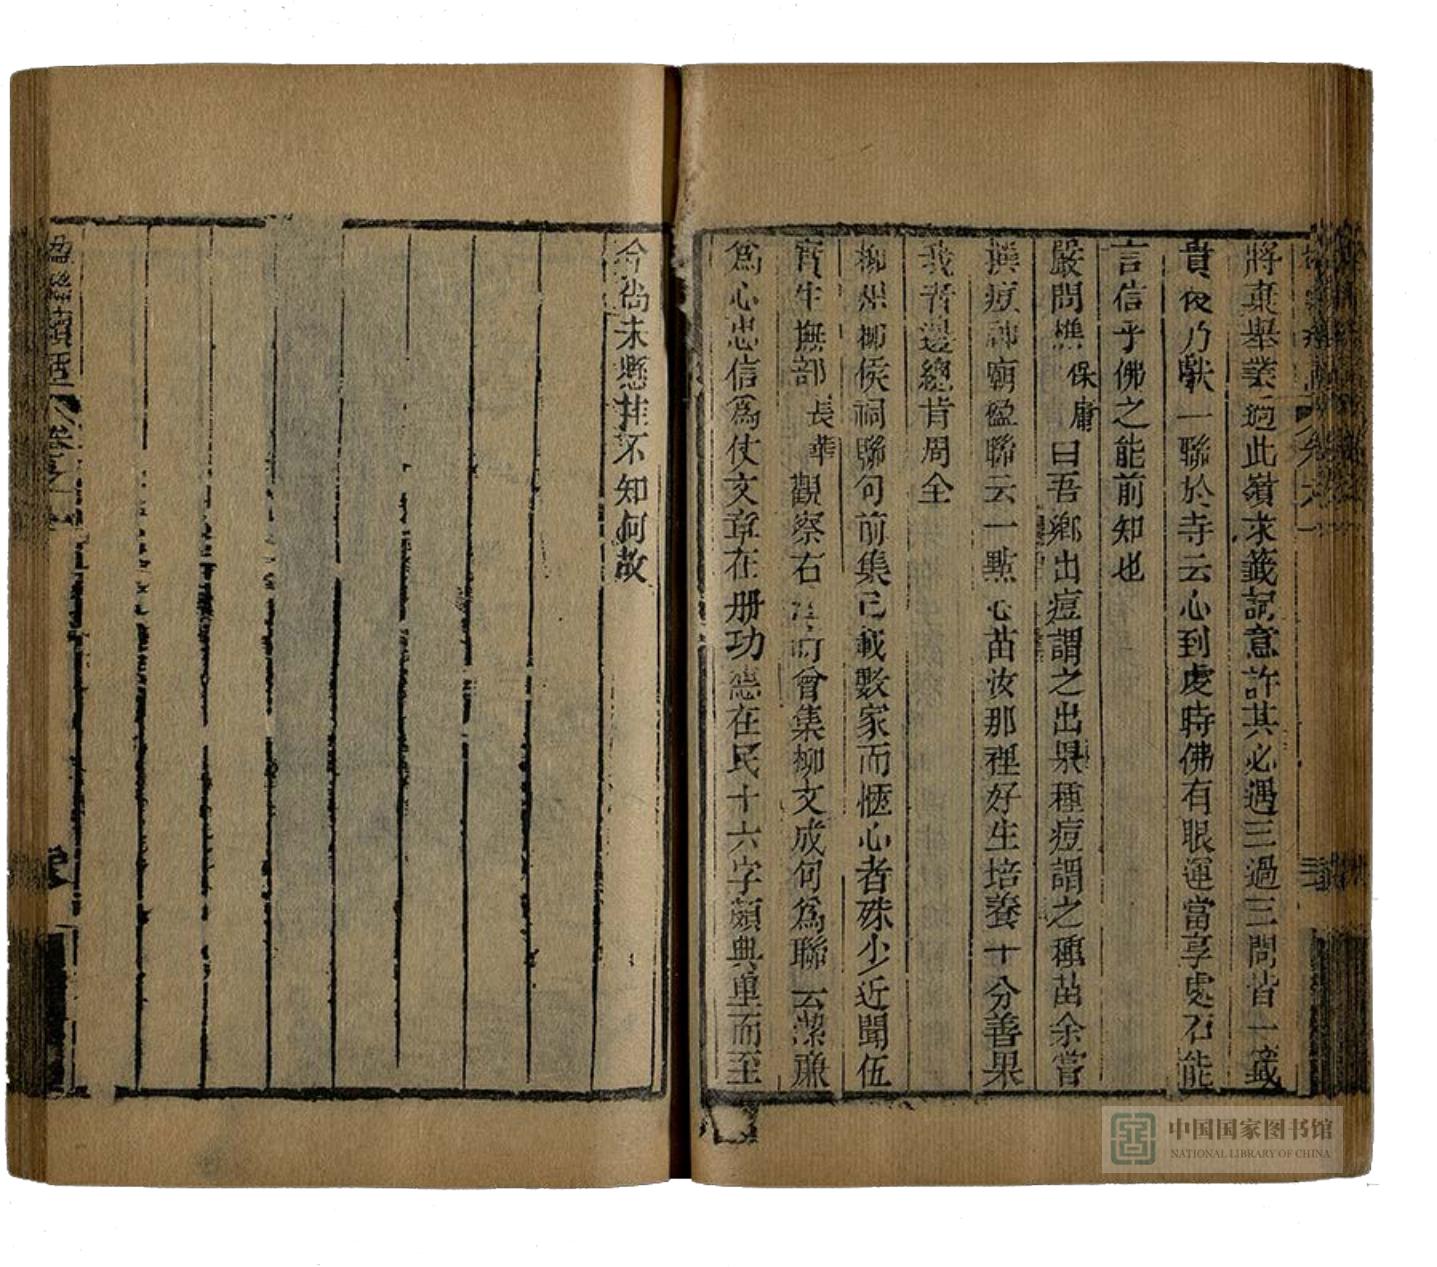 將棄舉業過此嶺求籤記意許其必遇三過三問皆一籤
貴後乃獻一聯於寺云心到虔時佛有眼運當享處石能
言信乎佛之能前知也
嚴問樵保庸曰吾鄉出痘謂之出果種痘謂之種苗余嘗
撰痘神廟楹聯云一點心苗汝那裡好生培養十分善果
我者邊總肯周全
柳州柳侯祠聯句前集已載數家而愜心者殊少近聞伍
實生撫部長華觀察右江時曾集柳文成句爲聯云潔廉
爲心忠信爲仗文章在册功德在民十六字頗典重而至
今尚未懸挂不知何故
楹聯續話 卷之
中国国家图书馆
NATIONAL LIBRARY OF CHINA